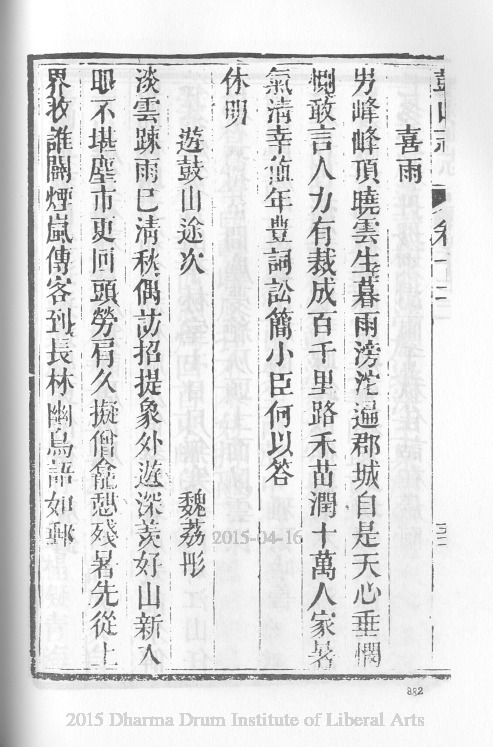 鼓山志 卷十二
喜雨
屴峰峰頂曉雲生暮雨滂沱遍郡城自是天心垂憫
惻敢言人力有裁成百千里路禾苗潤十萬人家暑
氣清幸値年豊詞訟簡小臣何以答
休明
遊鼓山途次 魏荔彤
淡雲踈雨已清秋偶訪招提象外遊深羨好山新入
眼不堪塵市更回頭勞肩久擬僧龕憇殘暑先從上
界收誰闢煙嵐傳客到長林幽鳥語如郵
2015-04-16
882
2015 Dharma Drum Institute of Liberal Arts